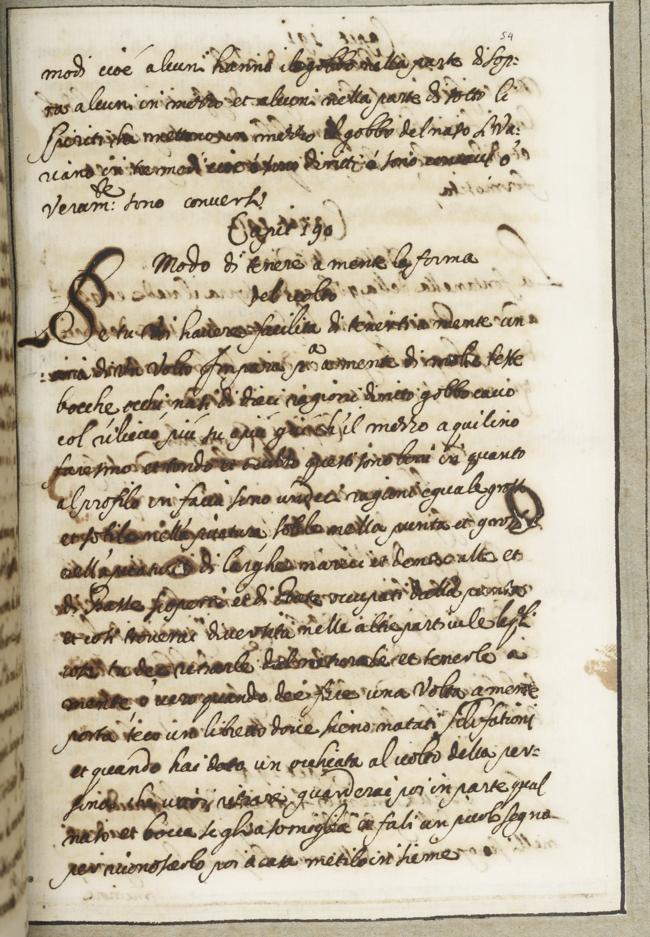 54
modi cioè alcuni hanno il gobbo nella parte di sop:
ra alcuni in mezzo et alcuni nella parte di sotto li
che mettono in mezzo il gobbo del naso si va:
riano in tre modi cioè o sono diritti o sono concavi o
veram:te sono conversi
Capit 190
Modo di tenere a mente la forma
del volto
Se tu voi havere facilità di tenerti a mente un
aria di un Volto Impara p.a a mente di molte teste
bocche occhi nasi di dieci ragioni diritto gobbo cavo
col rilievo più su o più giù ch'il mezzo aquilino
et tondo et questi sono boni in quanto
al profilo in facia sono undeci ragioni equale grosi
et sotile nella punta et grosso
di larghe narici et di alte et
di basse et di occupati dalla
et così troverai diversità nelle altre particule le qli
cose tu dei ritrarle dal naturale et tenerle a
mente o vero quando dei fare una Volta a mente
porta teco un libretto dove sieno notati
et quando hai dato un ochiata al volto della per:
sona che voi ritrare guarderai poi in parte qual
naso et bocca se gli asomiglia e fali un picol segno
per riconoserlo poi a casa metilo insieme